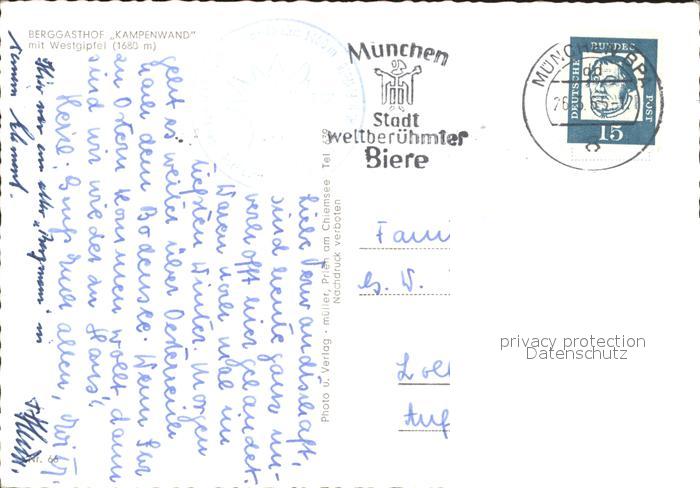 BERGGASTHOF „KAMPENWAND"
mit Westgipfel (1680 m)
München
Stadt
weltberühmter
Biere
MÜNCHEN BPA
DEUTSCHE BUNDES POST
15
Photo u. Verlag · müller, Prien am Chiemsee Tel 639
Nachdruck verboten
Liebe Verwandtschaft,
sind heute ganz un-
verhofft hier gelandet.
Waren mal im
tiefsten Winter. Morgen
geht es weiter über Oesterreich
nach dem Bodensee. Wenn Ihr
an Ostern kommen wollt, dann
sind wir wieder zu Haus!
Herzl. Gruß Euch allen,
Hier war ein alter „Bergmann" in
Fami
L. W.
privacy protection
Datenschutz
Nr. 66